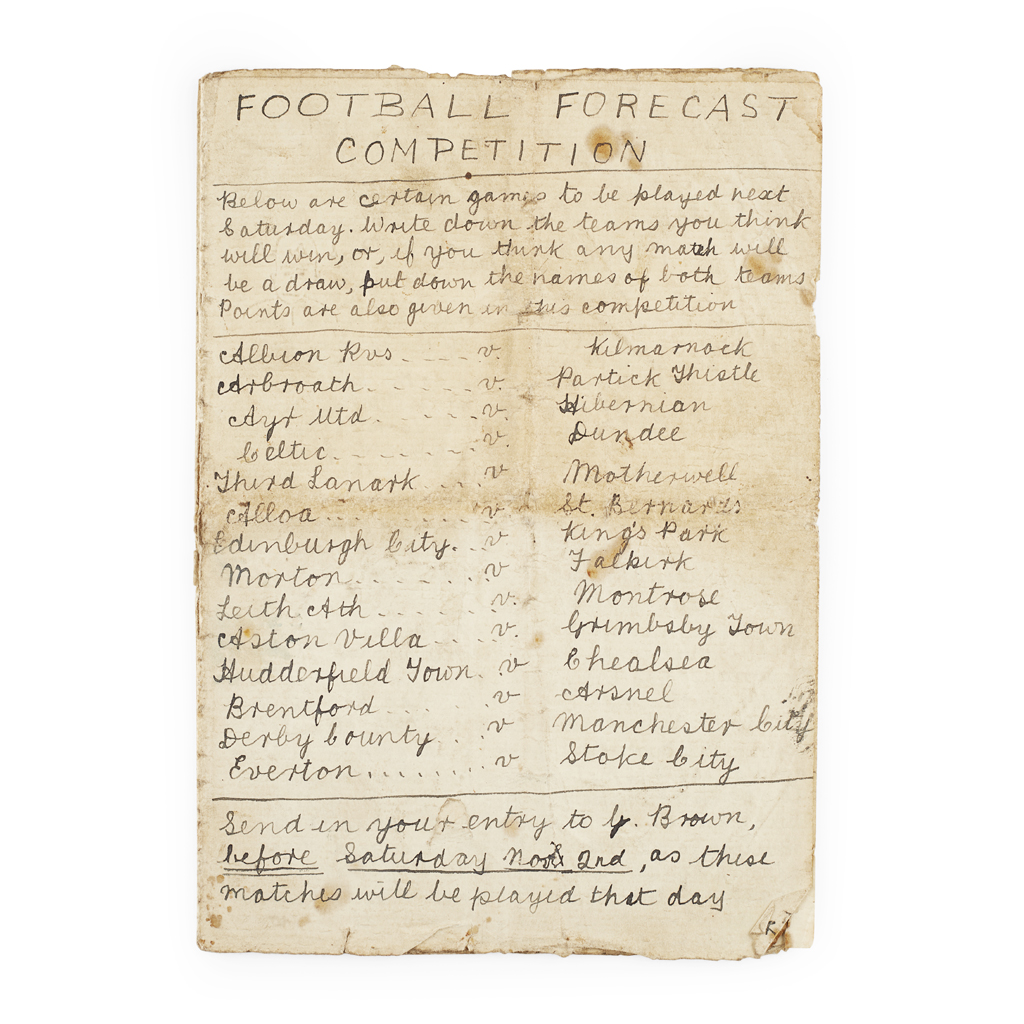 FOOTBALL FORECAST
COMPETITION
Below are certain games to be played next
Saturday. Write down the teams you think
will win, or, if you think any match will
be a draw, put down the names of both teams
Points are also given in this competition
Albion Rvs . . . . v. Kilmarnock
Arbroath . . . . . . v. Partick Thistle
Ayr Utd . . . . . . v. Hibernian
Celtic . . . . . . . v. Dundee
Third Lanark . . . v Motherwell
Alloa . . . . . . . . v. St. Bernards
Edinburgh City. . . v King's Park
Morton . . . . . . . v Falkirk
Leith Ath . . . . . v. Montrose
Aston Villa . . . . v. Grimbsby Town
Hudderfield Town . v Chealsea
Brentford . . . . . . v Arsnel
Derby County . . . v Manchester City
Everton . . . . . . . . v Stoke City
Send in your entry to G. Brown,
before Saturday 2nd, as these
matches will be played that day